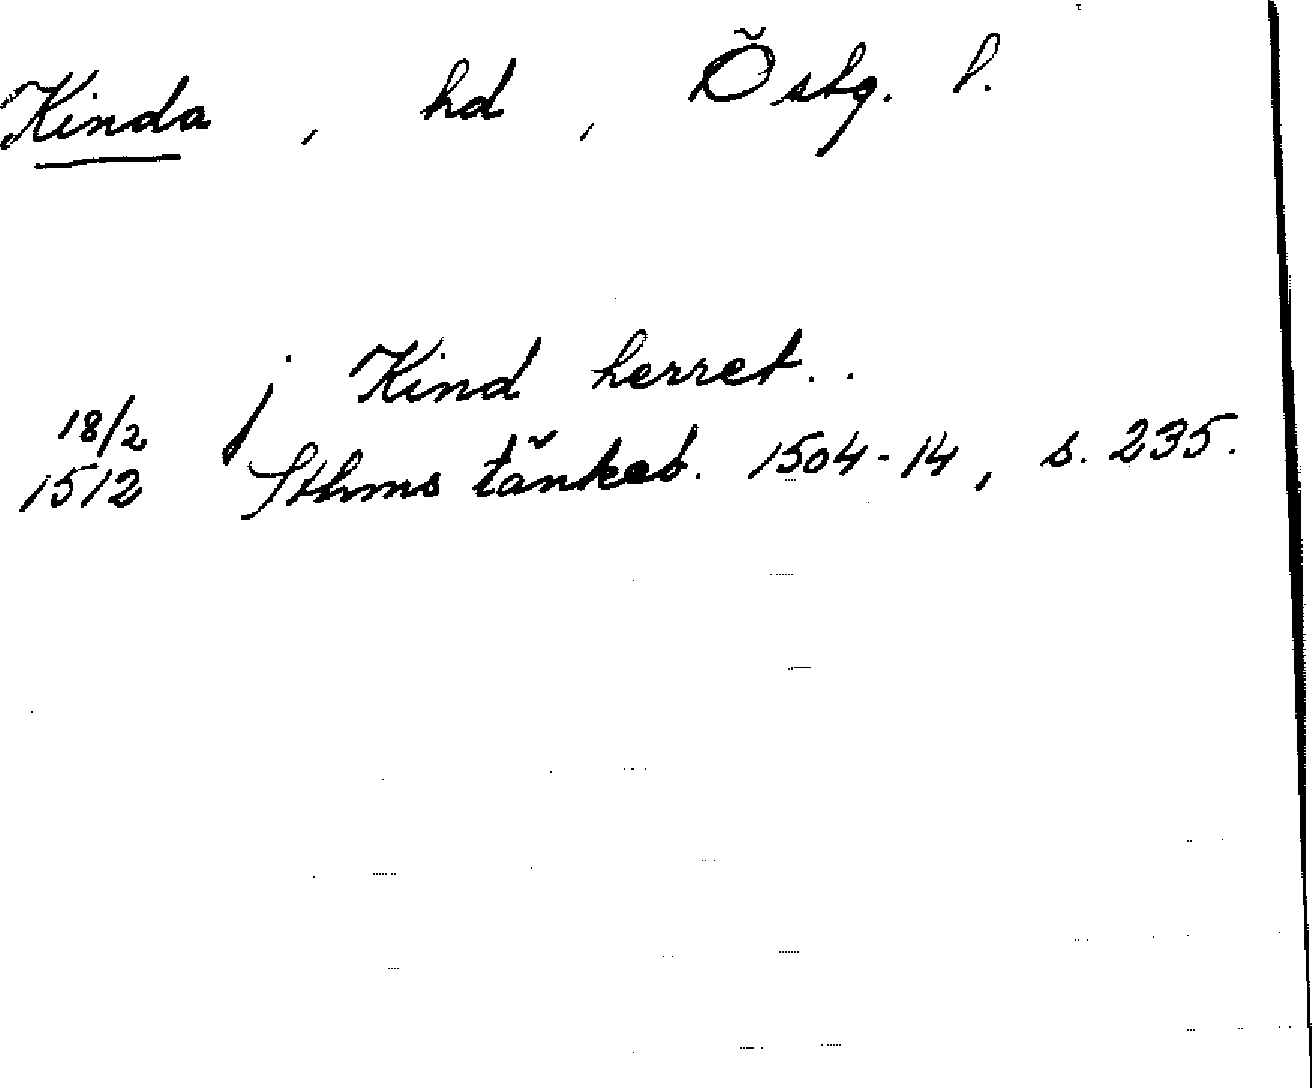 Kinda, hd, Östg. l.
j Kind herret..
18/2
1512 Sthms tänkeb. 1504-14, s. 235.